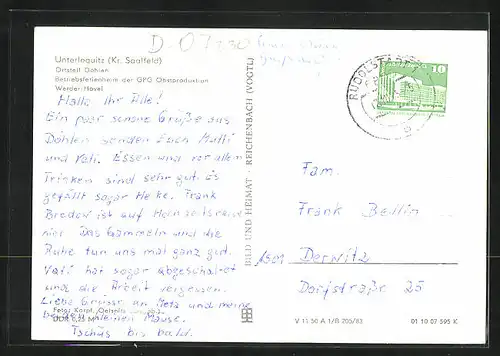 D-07330
Unterloquitz (Kr. Saalfeld)
Ortsteil Döhlen
Betriebsferienheim der GPG Obstproduktion
Werder-Havel
Hallo Ihr Alle!
Ein paar schöne Grüße aus
Döhlen senden Euch Mutti
und Vati. Essen und vor allem
Trinken sind sehr gut. Es
gefällt sogar Heike. Frank
Bredow ist auf Hochzeitsreise
hier. Das Gammeln und die
Ruhe tun uns mal ganz gut.
Vati hat sogar abgeschaltet
und die Arbeit vergessen.
Liebe Grüsse an und meine
beiden kleinen Mäuse.
Tschüs bis bald.
Foto: Karpf, Oelsnitz
DDR 0,25 M
BILD UND HEIMAT · REICHENBACH (VOGTL)
V 11 50 A 1/B 205/83
01 10 07 595 K
RUDOLSTADT
10
Fam.
Frank Bellin
1501 Derwitz
Dorfstraße 25